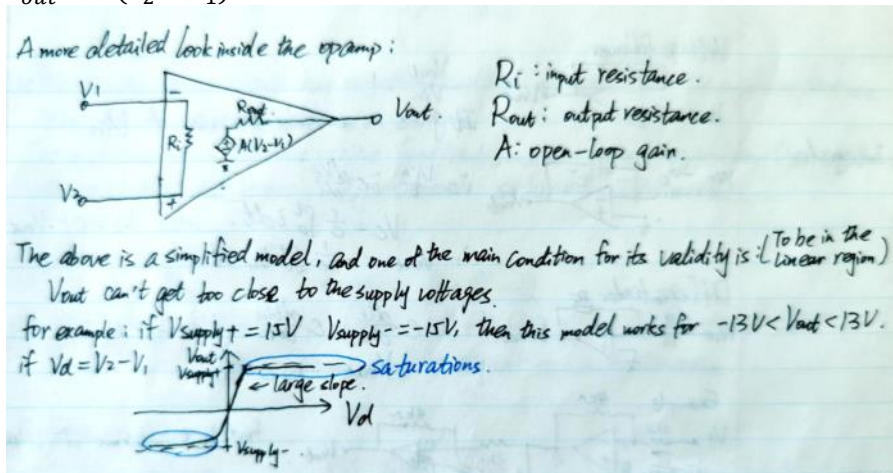 A more detailed look inside the opamp:
V1
−
Rout
Vout.
Ri
A(V2-V1)
V2
+
Ri : input resistance.
Rout : output resistance.
A: open-loop gain.
The above is a simplified model, and one of the main condition for its validity is : (To be in the linear region)
Vout can't get too close to the supply voltages.
for example : if Vsupply+ = 15V Vsupply- = -15V, then this model works for -13V < Vout < 13V.
if Vd = V2 - V1
Vout
Vsupply+
saturations.
← large slope.
Vd
Vsupply-